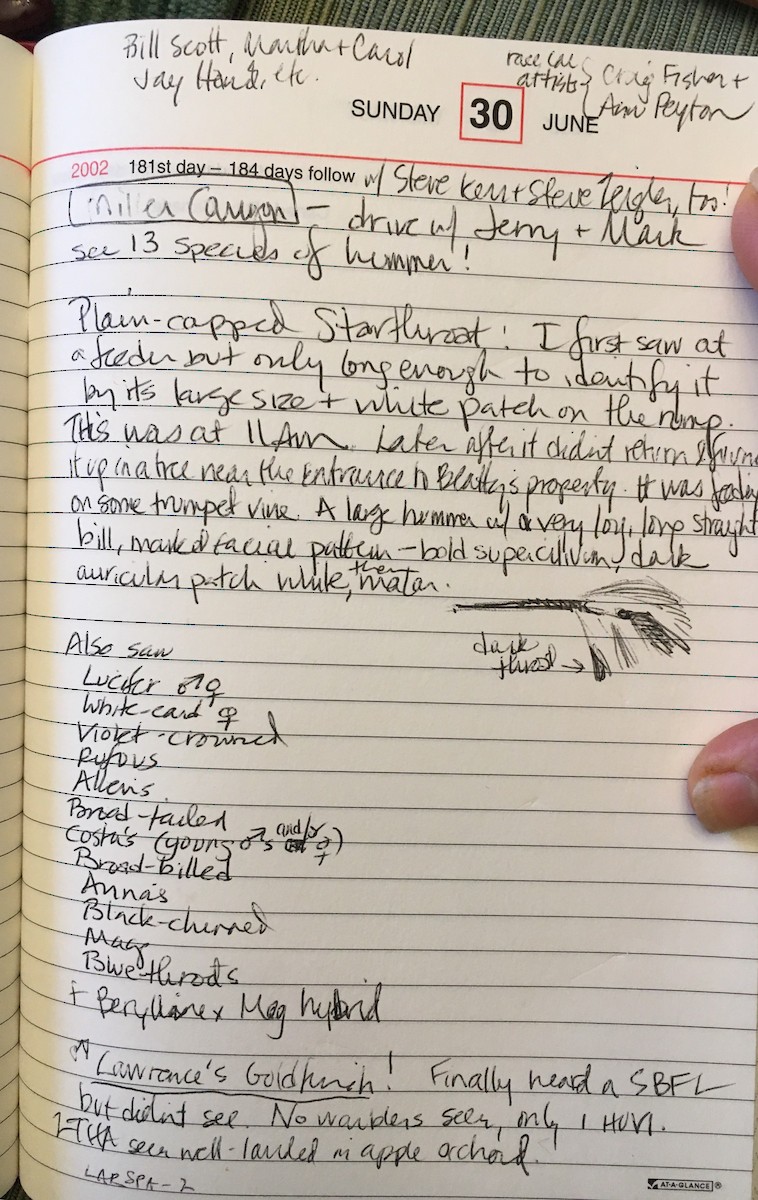 Bill Scott, Martha + Carol
Jay Hand, etc.
race car
artists } Craig Fisher +
Ann Peyton
SUNDAY 30 JUNE
2002 181st day – 184 days follow w/ Steve Ken + Steve too!
Miller Canyon – drive w/ Jerry + Mark
see 13 species of hummer!
Plain-capped Starthroat! I first saw at
a feeder but only long enough to identify it
by its large size + white patch on the rump.
This was at 11 AM. Later after it didn't return I found
it up in a tree near the entrance to Beatty's property. It was feeding
on some trumpet vine. A large hummer w/ a very long, long straight
bill, marked facial pattern – bold supercilium, dark
auricular patch white, then malar.
dark
throat →
Also saw
Lucifer ♂♀
White-eared ♀
Violet-crowned
Rufous
Allens
Broad-tailed
Costa's (young ♂'s and/or ♀)
Broad-billed
Anna's
Black-chinned
Mag
Bluethroats
+ Berylline x Mag hybrid
Lawrence's Goldfinch! Finally heard a SBFL
but didn't see. No warblers seen, only 1 HUVI.
1-THA seen well-landed in apple orchard.
LARSPA-2
AT-A-GLANCE®